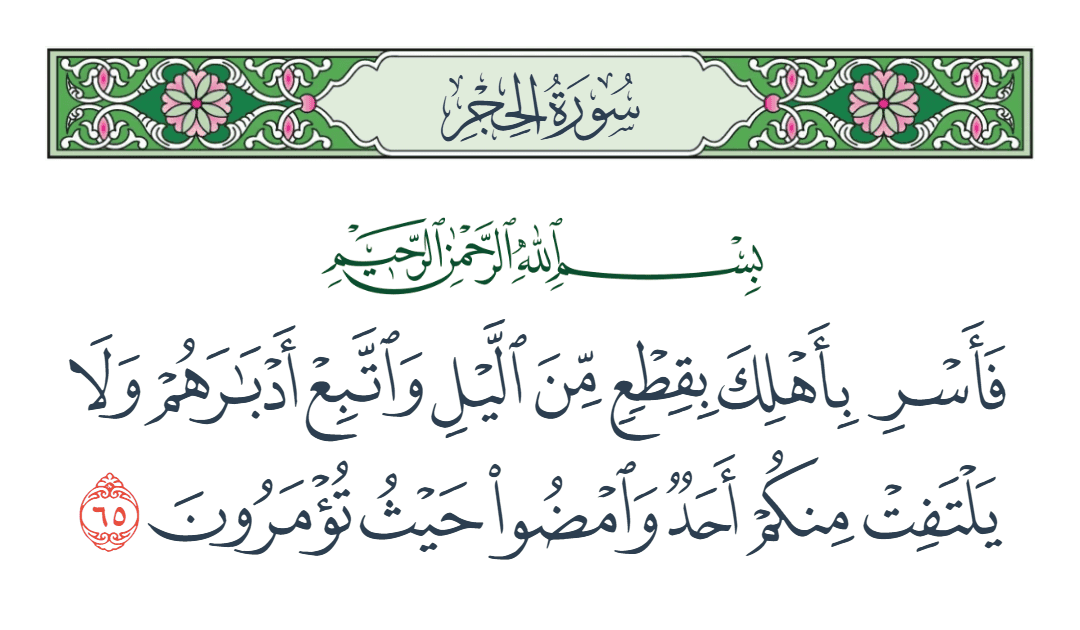 سُورَةُ الحِجْرِ
بِسْمِ ٱللَّهِ ٱلرَّحْمَٰنِ ٱلرَّحِيمِ
فَأَسْرِ بِأَهْلِكَ بِقِطْعٍ مِّنَ ٱلَّيْلِ وَٱتَّبِعْ أَدْبَـٰرَهُمْ وَلَا
يَلْتَفِتْ مِنكُمْ أَحَدٌ وَٱمْضُوا۟ حَيْثُ تُؤْمَرُونَ ٦٥